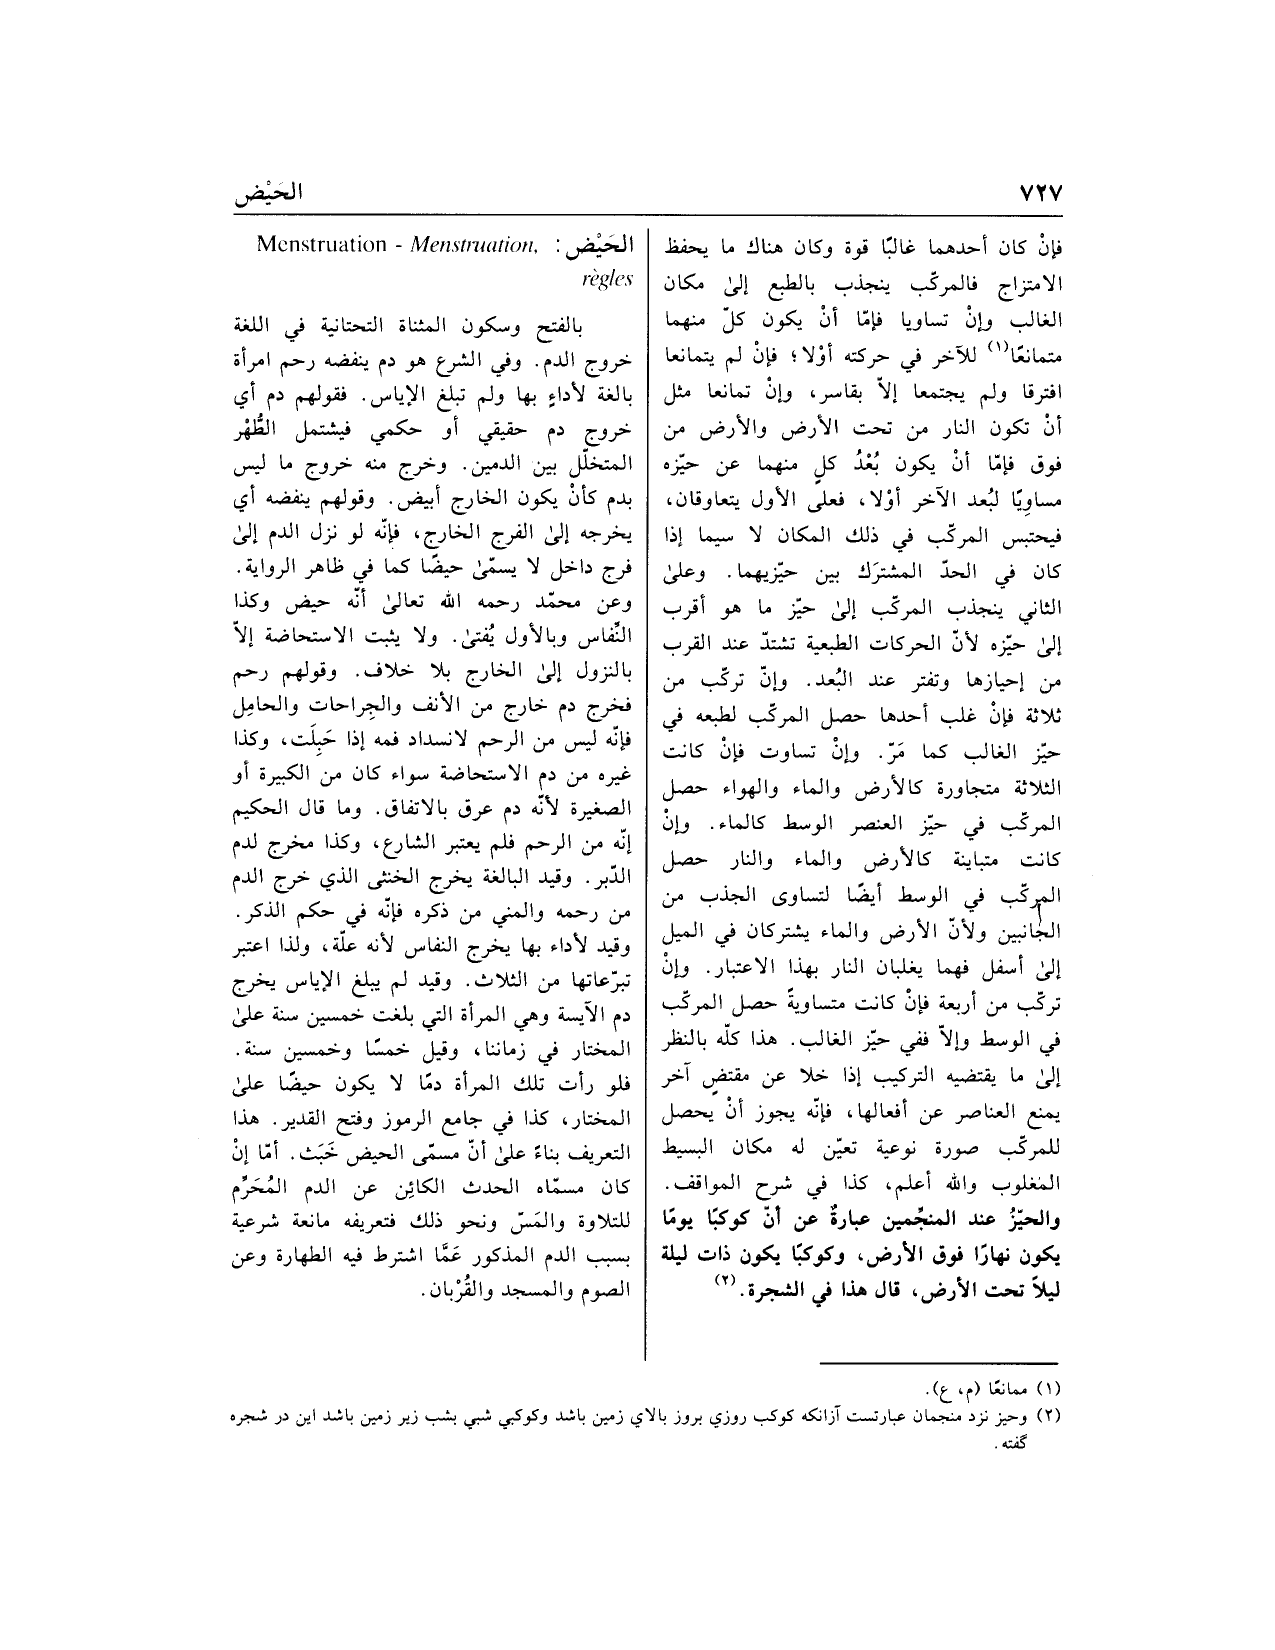 ٧٢٧
الحَيْض
فإنْ كان أحدهما غالبًا قوة وكان هناك ما يحفظ
الامتزاج فالمركّب ينجذب بالطبع إلىٰ مكان
الغالب وإنْ تساويا فإمّا أنْ يكون كلّ منهما
متمانعًا(١) للآخر في حركته أوْلا؛ فإنْ لم يتمانعا
افترقا ولم يجتمعا إلاّ بقاسر، وإنْ تمانعا مثل
أنْ تكون النار من تحت الأرض والأرض من
فوق فإمّا أنْ يكون بُعْدُ كلٍ منهما عن حيّزه
مساويًا لبُعد الآخر أوْلا، فعلى الأول يتعاوقان،
فيحتبس المركّب في ذلك المكان لا سيما إذا
كان في الحدّ المشترَك بين حيّزيهما. وعلىٰ
الثاني ينجذب المركّب إلىٰ حيّز ما هو أقرب
إلىٰ حيّزه لأنّ الحركات الطبعية تشتدّ عند القرب
من إحيازها وتفتر عند البُعد. وإنّ تركّب من
ثلاثة فإنْ غلب أحدها حصل المركّب لطبعه في
حيّز الغالب كما مَرّ. وإنْ تساوت فإنْ كانت
الثلاثة متجاورة كالأرض والماء والهواء حصل
المركّب في حيّز العنصر الوسط كالماء. وإنْ
كانت متباينة كالأرض والماء والنار حصل
المركّب في الوسط أيضًا لتساوى الجذب من
الجانبين ولأنّ الأرض والماء يشتركان في الميل
إلىٰ أسفل فهما يغلبان النار بهذا الاعتبار. وإنْ
تركّب من أربعة فإنْ كانت متساويةً حصل المركّب
في الوسط وإلاّ ففي حيّز الغالب. هذا كلّه بالنظر
إلىٰ ما يقتضيه التركيب إذا خلا عن مقتضٍ آخر
يمنع العناصر عن أفعالها، فإنّه يجوز أنْ يحصل
للمركّب صورة نوعية تعيّن له مكان البسيط
المغلوب والله أعلم، كذا في شرح المواقف.
والحيّزُ عند المنجِّمين عبارةٌ عن أنّ كوكبًا يومًا
يكون نهارًا فوق الأرض، وكوكبًا يكون ذات ليلة
ليلاً تحت الأرض، قال هذا في الشجرة.(٢)
الحَيْض: Menstruation - Menstruation,
règles
بالفتح وسكون المثناة التحتانية في اللغة
خروج الدم. وفي الشرع هو دم ينفضه رحم امرأة
بالغة لأداءٍ بها ولم تبلغ الإياس. فقولهم دم أي
خروج دم حقيقي أو حكمي فيشتمل الطُّهْر
المتخلّل بين الدمين. وخرج منه خروج ما ليس
بدم كأنْ يكون الخارج أبيض. وقولهم ينفضه أي
يخرجه إلىٰ الفرج الخارج، فإنّه لو نزل الدم إلىٰ
فرج داخل لا يسمّىٰ حيضًا كما في ظاهر الرواية.
وعن محمّد رحمه الله تعالىٰ أنّه حيض وكذا
النِّفاس وبالأول يُفتىٰ. ولا يثبت الاستحاضة إلاّ
بالنزول إلىٰ الخارج بلا خلاف. وقولهم رحم
فخرج دم خارج من الأنف والجِراحات والحامِل
فإنّه ليس من الرحم لانسداد فمه إذا حَبِلَت، وكذا
غيره من دم الاستحاضة سواء كان من الكبيرة أو
الصغيرة لأنّه دم عرق بالاتفاق. وما قال الحكيم
إنّه من الرحم فلم يعتبر الشارع، وكذا مخرج لدم
الدّبر. وقيد البالغة يخرج الخنثى الذي خرج الدم
من رحمه والمني من ذكره فإنّه في حكم الذكر.
وقيد لأداء بها يخرج النفاس لأنه علّة، ولذا اعتبر
تبرّعاتها من الثلاث. وقيد لم يبلغ الإياس يخرج
دم الآيسة وهي المرأة التي بلغت خمسين سنة علىٰ
المختار في زماننا، وقيل خمسًا وخمسين سنة.
فلو رأت تلك المرأة دمًا لا يكون حيضًا علىٰ
المختار، كذا في جامع الرموز وفتح القدير. هذا
التعريف بناءً علىٰ أنّ مسمّى الحيض خَبَث. أمّا إنْ
كان مسمّاه الحدث الكائِن عن الدم المُحَرِّم
للتلاوة والمَسّ ونحو ذلك فتعريفه مانعة شرعية
بسبب الدم المذكور عَمَّا اشترط فيه الطهارة وعن
الصوم والمسجد والقُرْبان.
(١) ممانعًا (م، ع).
(٢) وحيز نزد منجمان عبارتست آزانكه كوكب روزي بروز بالاي زمين باشد وكوكبي شبي بشب زير زمين باشد اين در شجره
گفته.